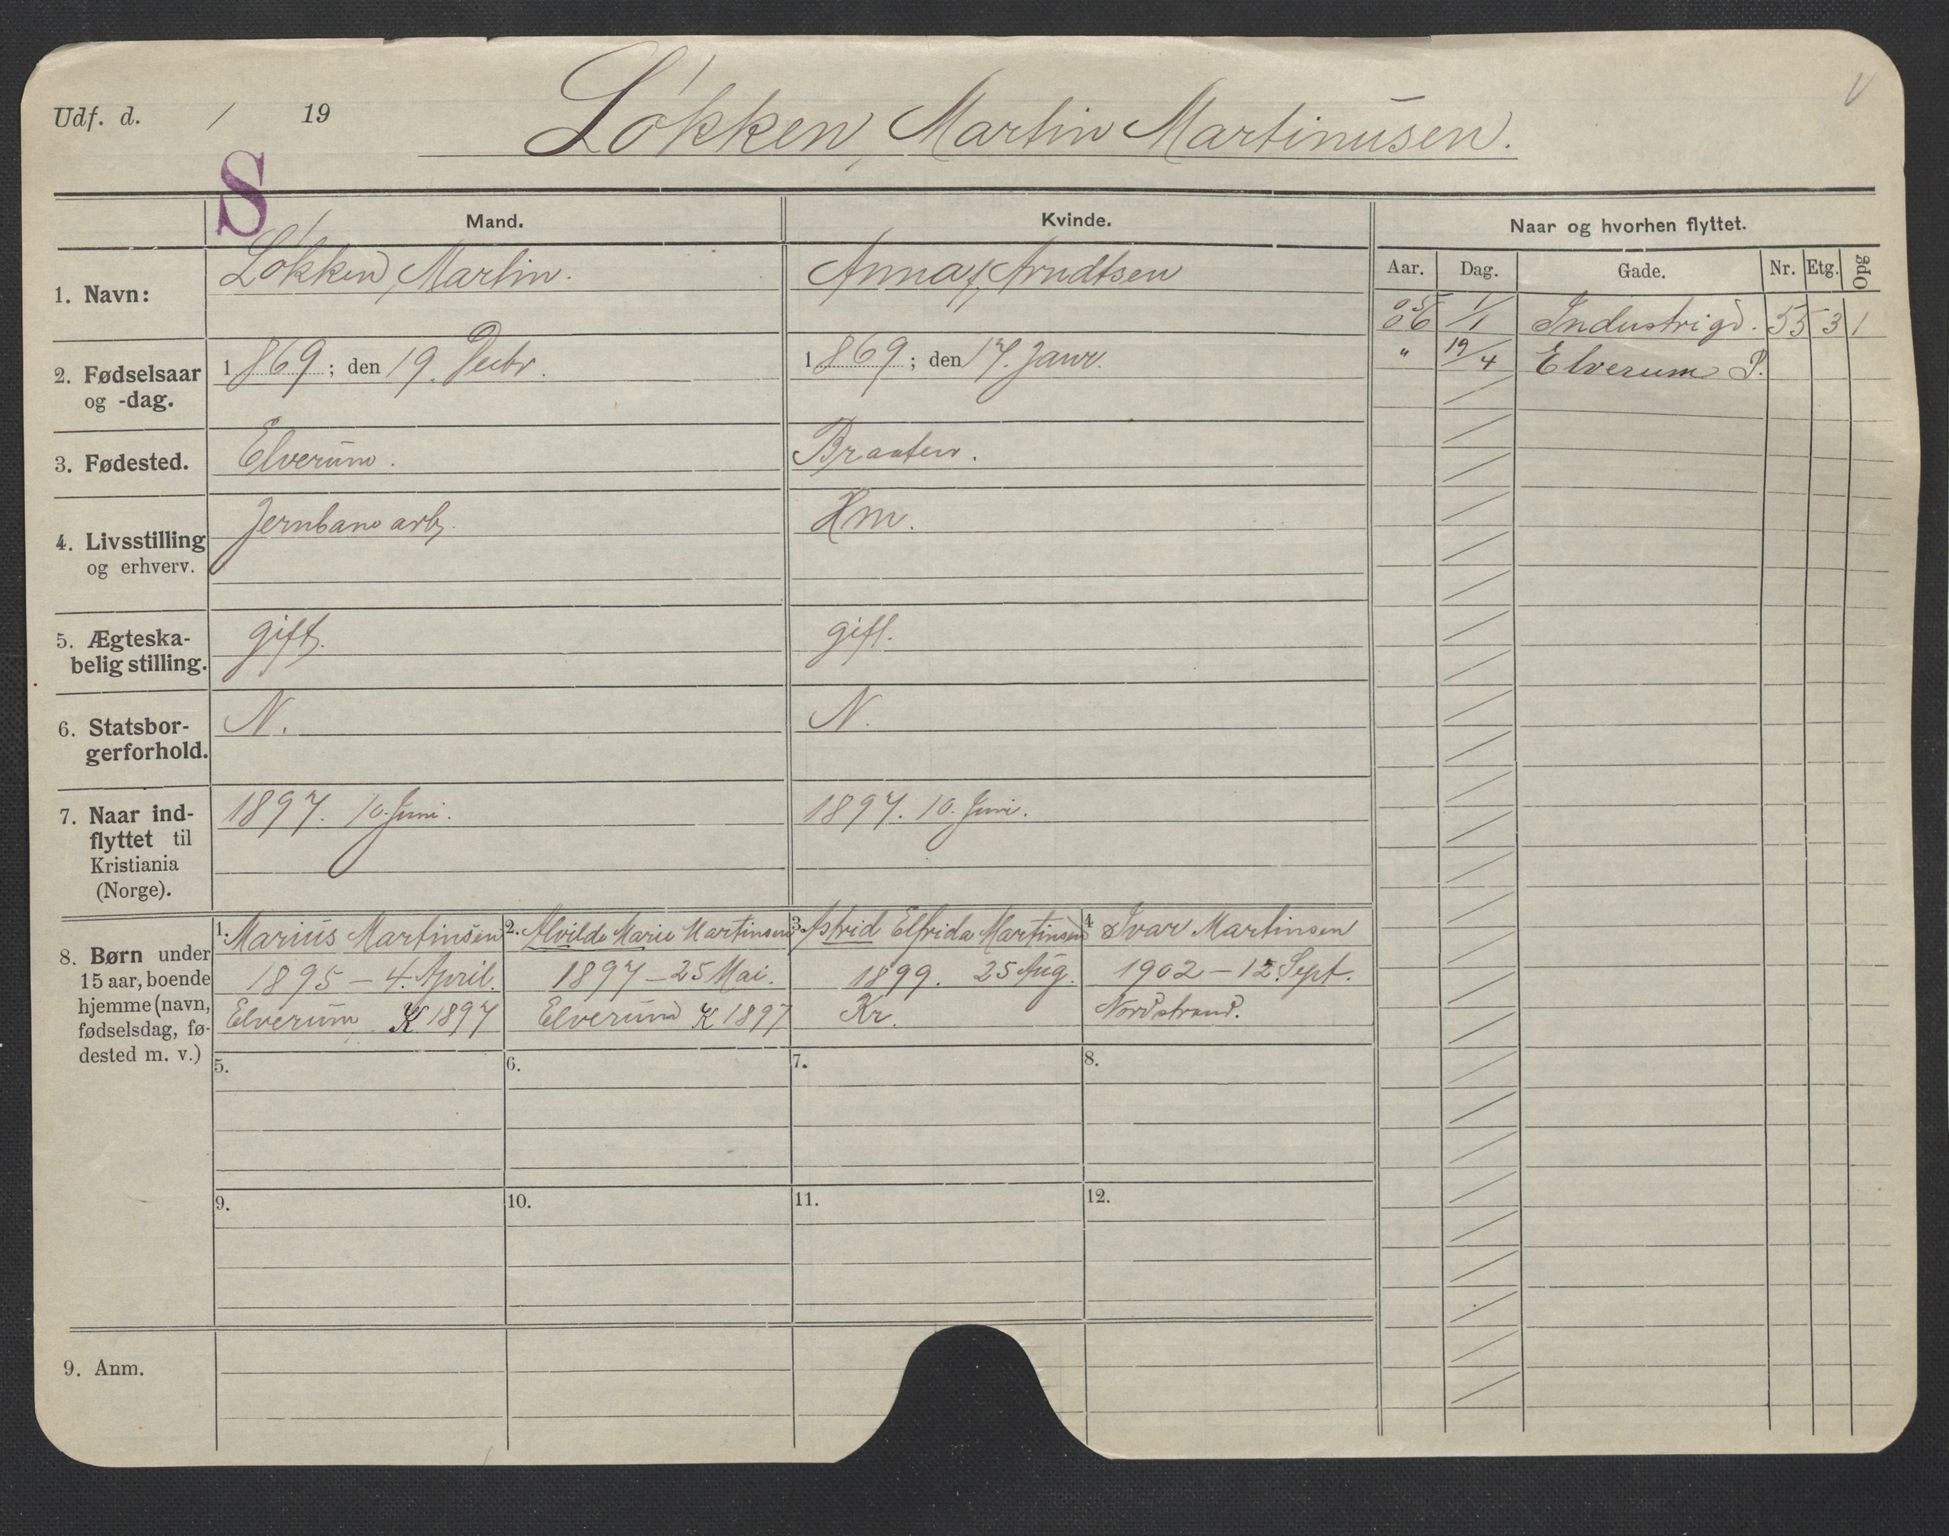 Udf. d. / 19 Løkken, Martin Martinusen.
S
Mand. Kvinde. Naar og hvorhen flyttet.
Aar. Dag. Gade. Nr. Etg. Opg
1. Navn: Løkken, Martin. Anna f. Arndtsen
06 1/1 Industrigd. 55 3 1
" 19/4 Elverum P.
2. Fødselsaar og -dag. 1869; den 19. Decbr. 1869; den 17. Janr.
3. Fødested. Elverum. Braaten.
4. Livsstilling og erhverv. Jernbane arb. Hm.
5. Ægteska-
belig stilling. gift. gift.
6. Statsbor-
gerforhold. N. N.
7. Naar ind-
flyttet til
Kristiania
(Norge). 1897. 10. Juni. 1897. 10. Juni.
8. Børn under
15 aar, boende
hjemme (navn,
fødselsdag, fø-
dested m. v.)
1. Marius Martinsen
1895 - 4. April.
Elverum K 1897
2. Alvilde Marie Martinsen
1897 - 25 Mai.
Elverum K 1897
3. Astrid Elfrida Martinsen
1899. 25 Aug.
Kr.
4. Ivar Martinsen
1902 - 12. Sept.
Nordstrand.
5. 6. 7. 8.
9. 10. 11. 12.
9. Anm.